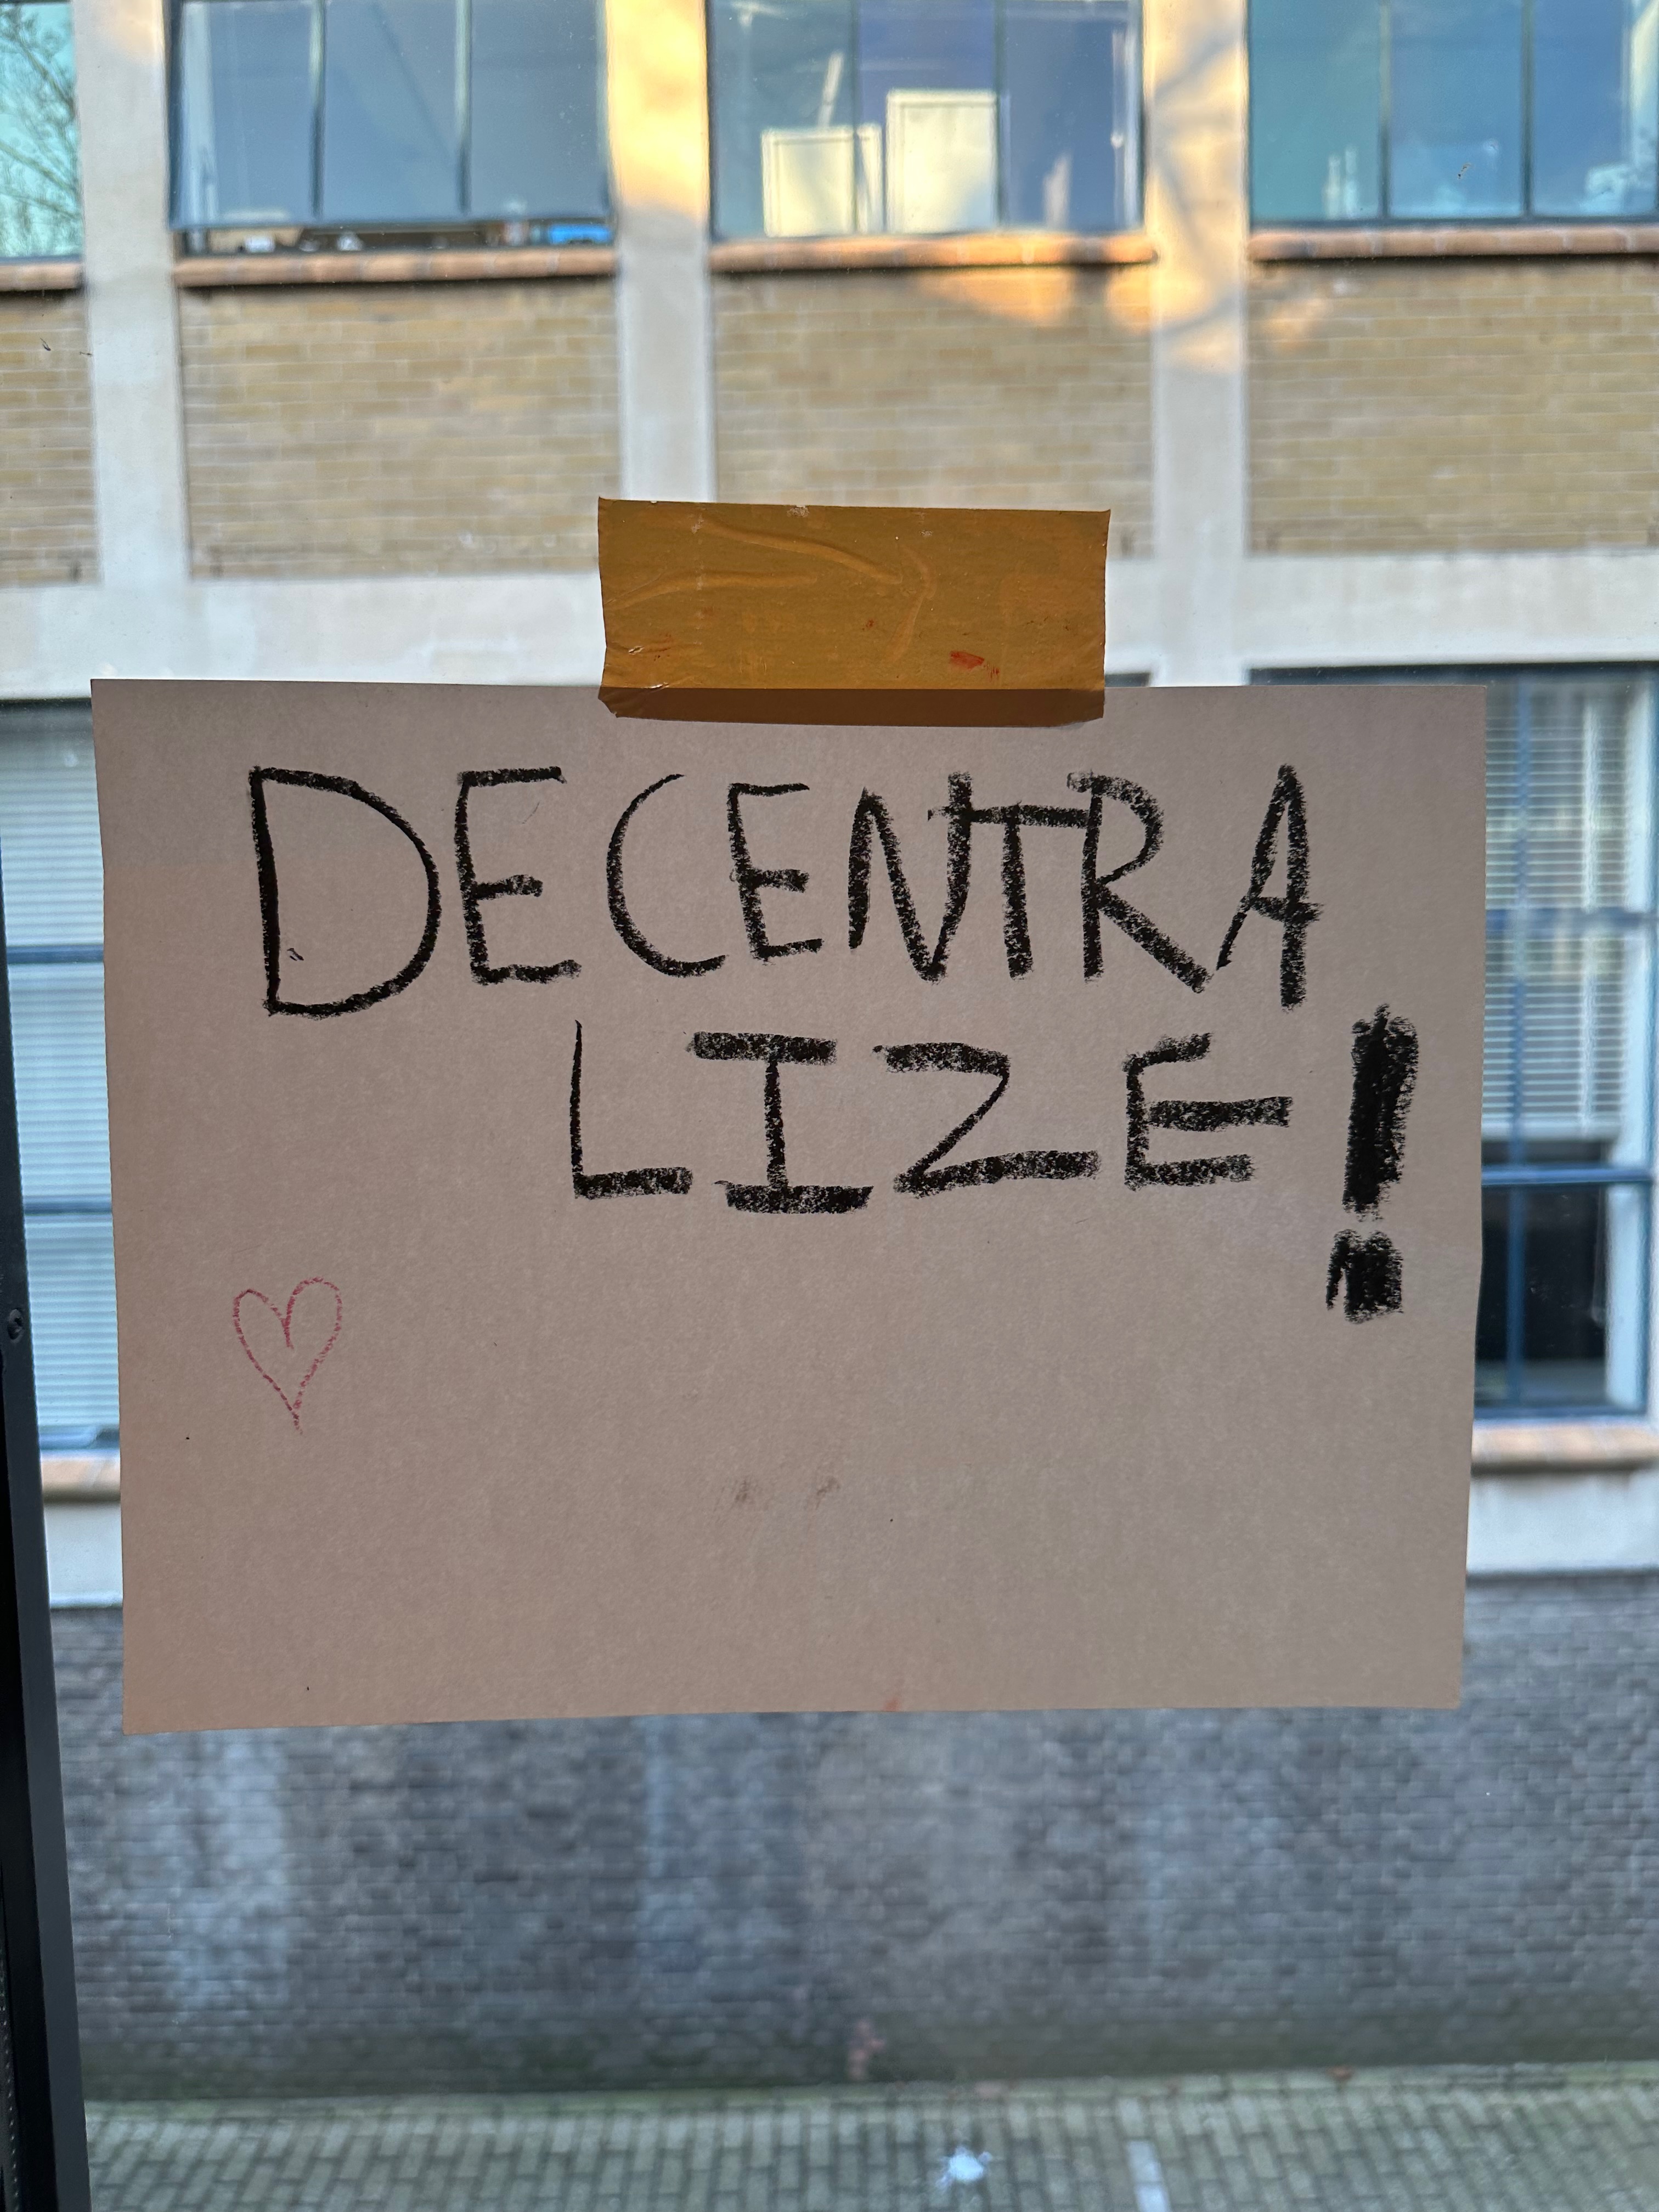 DECENTRA
LIZE!